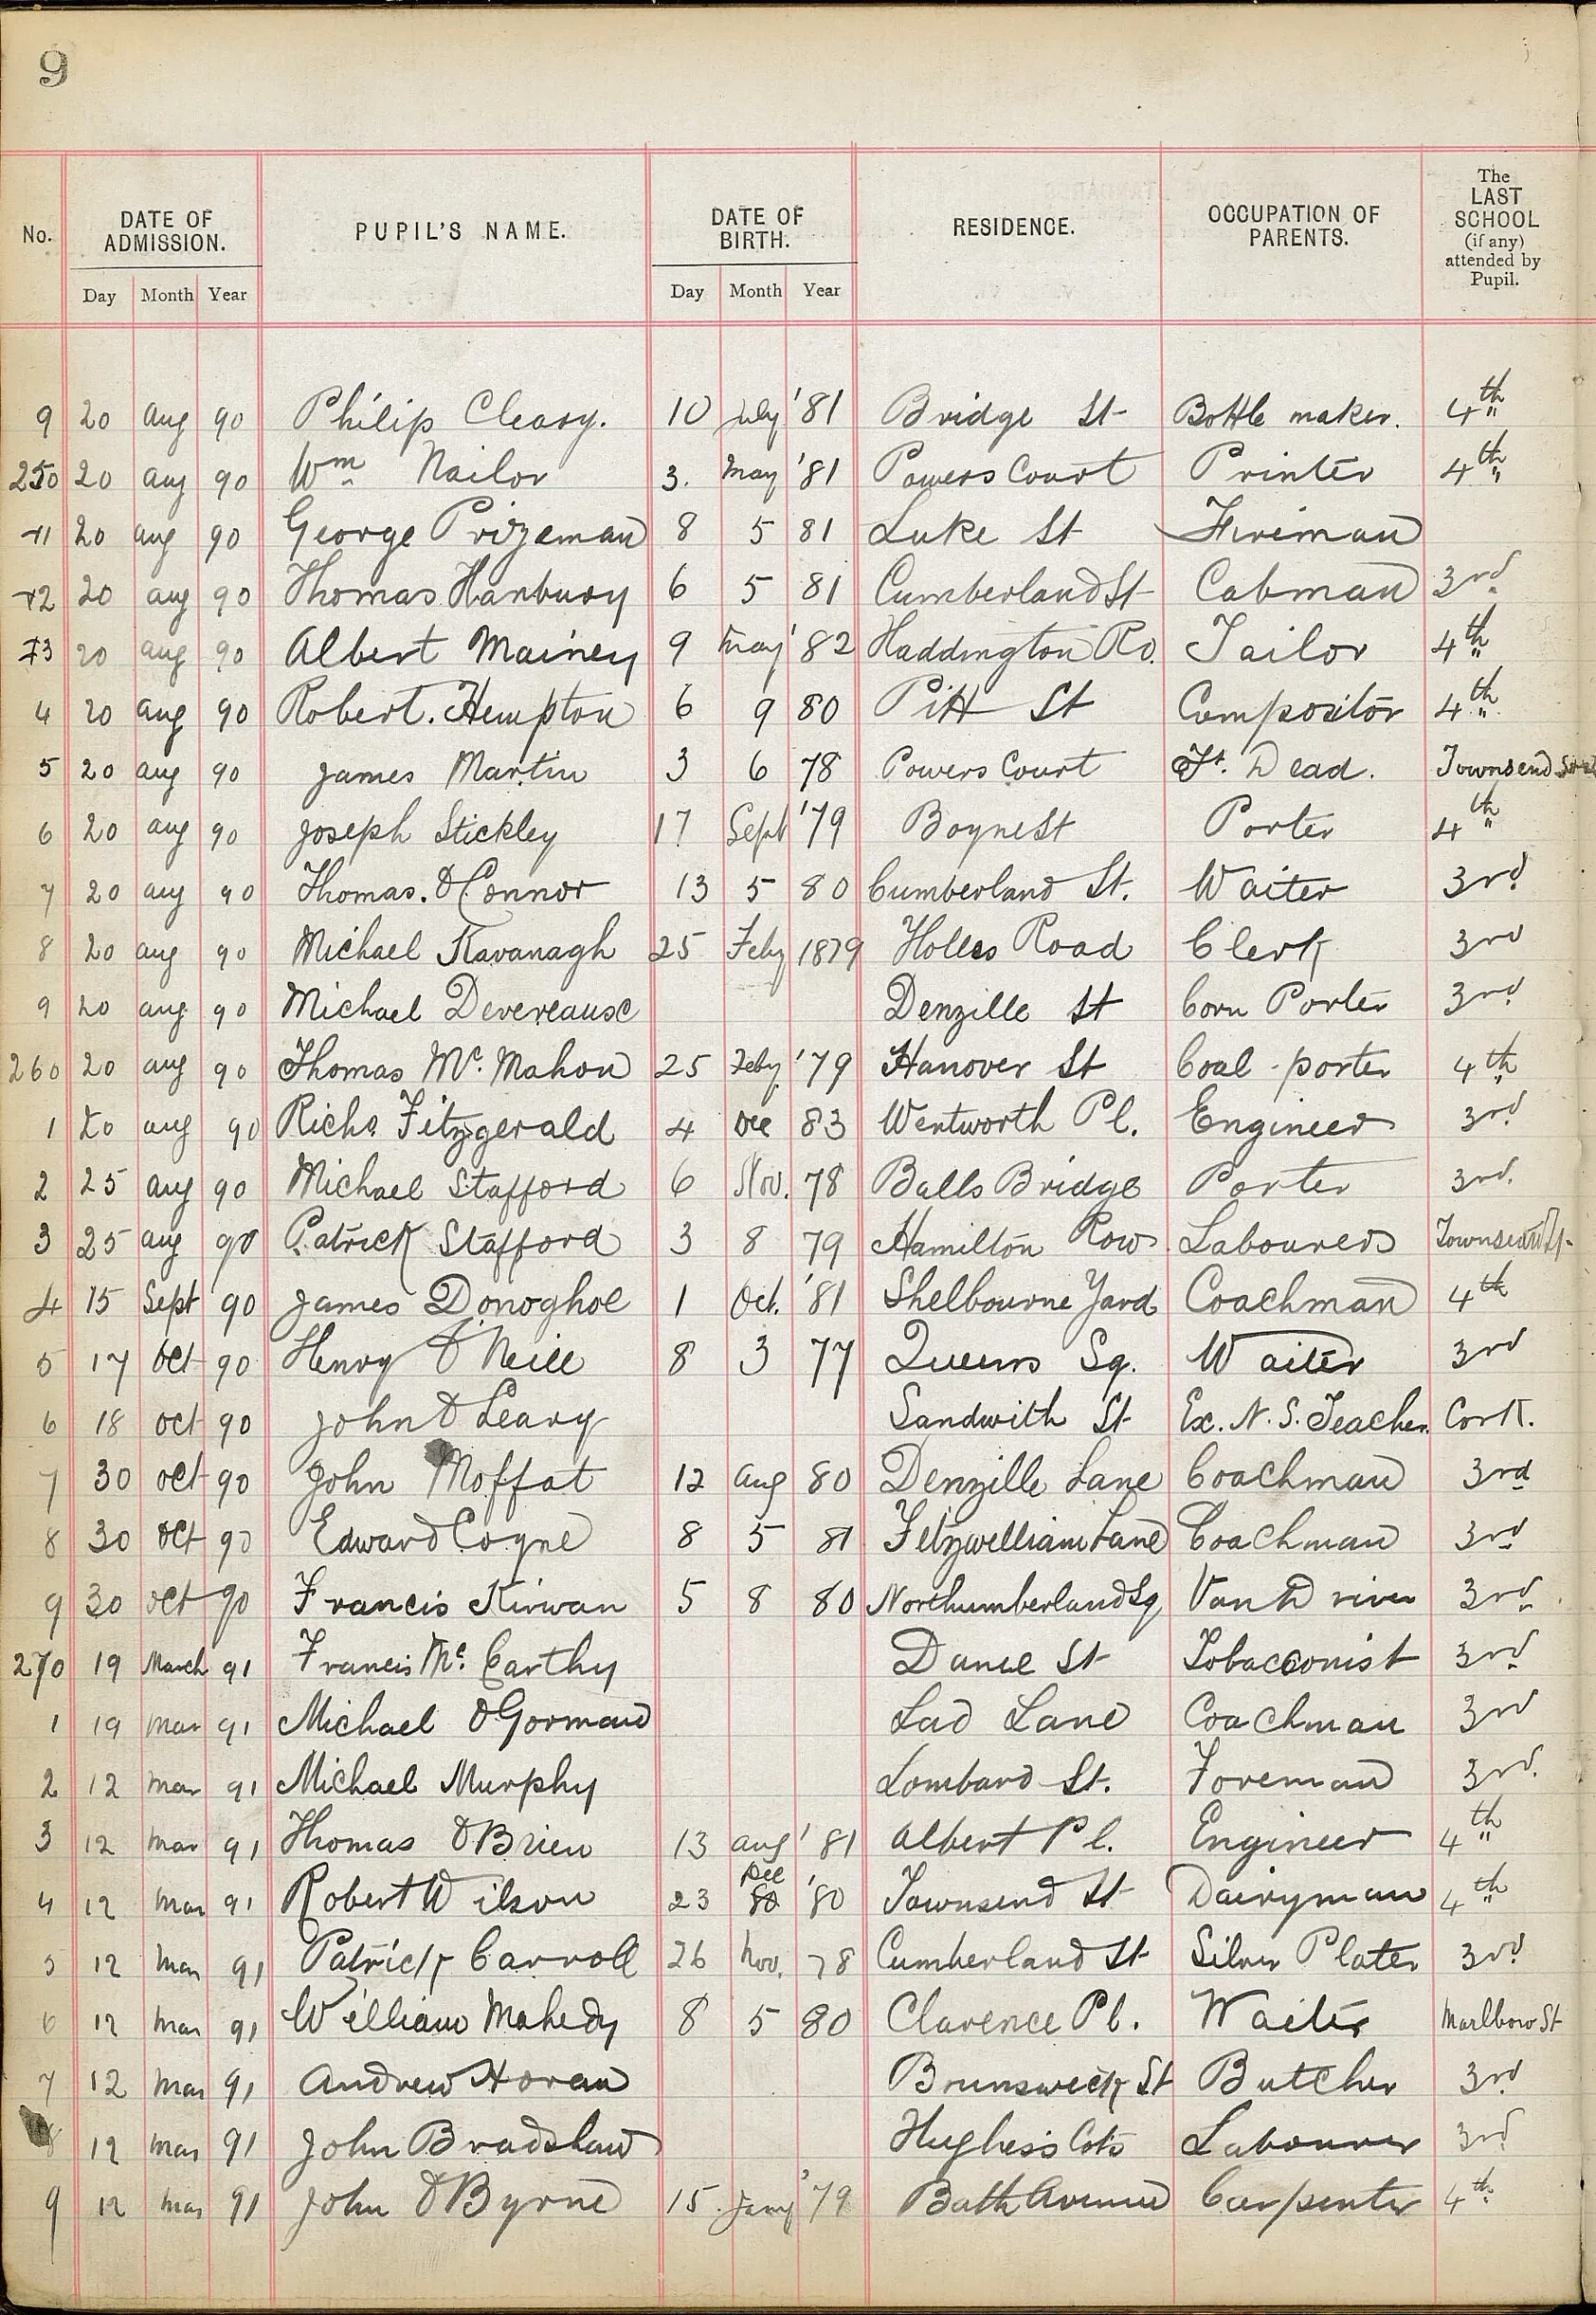 9
No. DATE OF ADMISSION. PUPIL'S NAME. DATE OF BIRTH. RESIDENCE. OCCUPATION OF PARENTS. The LAST SCHOOL (if any) attended by Pupil.
Day Month Year Day Month Year
9 20 Aug 90 Philip Cleary. 10 July '81 Bridge St Bottle maker. 4th
250 20 Aug 90 Wm Nailor 3. May '81 Powers Court Printer 4th
1 20 Aug 90 George Prizeman 8 5 81 Luke St Fireman
2 20 Aug 90 Thomas Hanbury 6 5 81 Cumberland St Cabman 3rd
3 20 Aug 90 Albert Mainey 9 May '82 Haddington Rd. Tailor 4th
4 20 Aug 90 Robert. Hempton 6 9 80 Pitt St Compositor 4th
5 20 Aug 90 James Martin 3 6 78 Powers Court Ft. Dead. Townsend Street
6 20 Aug 90 Joseph Stickley 17 Sept '79 Boyne St Porter 4th
7 20 Aug 90 Thomas. O'Connor 13 5 80 Cumberland St. Waiter 3rd
8 20 Aug 90 Michael Kavanagh 25 Feby 1879 Holles Road Clerk 3rd
9 20 Aug 90 Michael Devereause Denzille St Corn Porter 3rd
260 20 Aug 90 Thomas Mc. Mahon 25 Feby. '79 Hanover St Coal-porter 4th
1 20 Aug 90 Richd Fitzgerald 4 Dec 83 Wentworth Pl. Engineer 3rd
2 25 Aug 90 Michael Stafford 6 Nov. 78 Balls Bridge Porter 3rd.
3 25 Aug 90 Patrick Stafford 3 8 79 Hamilton Row Labourer Townsend St.
4 15 Sept 90 James Donoghoe 1 Oct. '81 Shelbourne Yard Coachman 4th
5 17 Oct 90 Henry O'Neill 8 3 77 Queens Sq. Waiter 3rd
6 18 Oct 90 John O'Leary Sandwith St Ex. N. S. Teacher. Cork.
7 30 Oct 90 John Moffat 12 Aug 80 Denzille Lane Coachman 3rd
8 30 Oct 90 Edward Coyne 8 5 81 Fitzwilliam Lane Coachman 3rd
9 30 Oct 90 Francis Kirwan 5 8 80 Northumberland Sq Van Driver 3rd
270 19 March 91 Francis Mc. Carthy Dame St Tobacconist 3rd
1 19 Mar 91 Michael O'Gorman Lad Lane Coachman 3rd
2 12 Mar 91 Michael Murphy Lombard St. Foreman 3rd.
3 12 Mar 91 Thomas O'Brien 13 Aug '81 Albert Pl. Engineer 4th
4 12 Mar 91 Robert Wilson 23 Dec 80 '80 Townsend St Dairyman 4th
5 12 Mar 91 Patrick Carroll 26 Nov. 78 Cumberland St Silver Plater 3rd
6 12 Mar 91 William Mahedy 8 5 80 Clarence Pl. Waiter Marlboro St
7 12 Mar 91 Andrew Horan Brunswick St Butcher 3rd
8 12 Mar 91 John Bradshaw Hughes's Cots Labourer 3rd
9 12 Mar 91 John O'Byrne 15 Jany '79 Bath Avenue Carpenter 4th